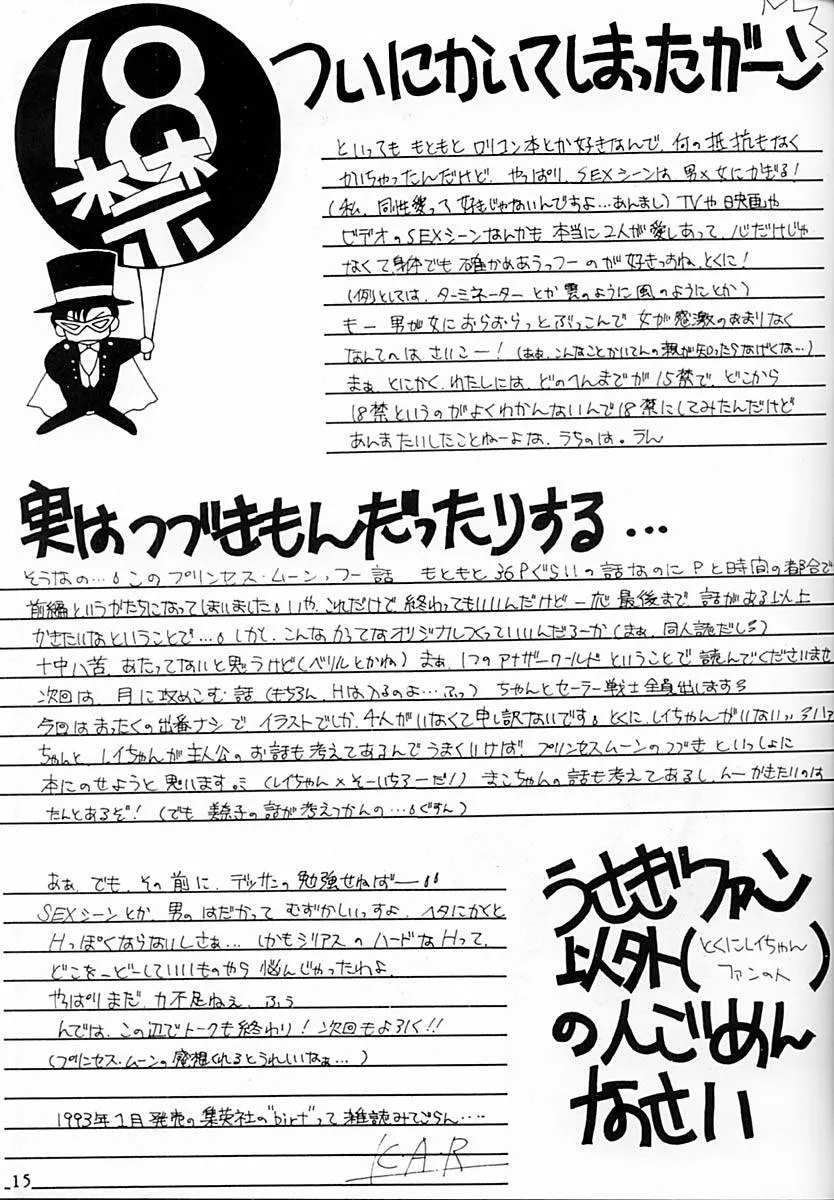 18禁
ついにかいてしまったガーン
といっても もともと ロリコン本とか好きなんで、何の抵抗もなく
かいちゃったんだけど、やっぱり、SEXシーンは 男×女にかぎる!
(私、同性愛って 好きじゃないんですよ…あんまし) TVや映画や
ビデオのSEXシーンなんかも 本当に2人が愛しあって、心だけじゃ
なくて、身体でも 確かめあうっつーのが 好きっすね、とくに!
(例としては、ターミネーター とか 雲のように風のようにとか)
もー 男が女におらおらっとぶっこんで 女が感激のあまりなく
なんてのは さいこー! (あぁ、こんなことかいてんの親が知ったらなげくな…)
まぁ、とにかく、わたしには、どのへんまでが 15禁で、どこから
18禁というのがよくわかんないんで18禁にしてみたんだけど
あんまたいしたことねーよな、うちのは。うん
実はつづきもんだったりする…
そうなの…。この プリンセス・ムーンっつー話 もともと 36Pぐらいの話なのに Pと時間の都合で
前編というかたちになってしまいました。いや、これだけで 終わってもいいんだけど 一応 最後まで 話がある以上
かきたいなということで…。しかし、こんなかってなオリジナルつくっていいんだろーか (まぁ、同人誌だしろ)
十中八苦、あたってないと思うけど (ベリルとかね) まぁ、1つのアナザーワールド ということで 読んでくださいませ
次回は、月に攻めこむ話 (もちろん、Hは入るのよ…ふっ) ちゃんとセーラー戦士全員出しますろ
今回はまったくの出番ナシで、イラストでしか、4人がいなくて申し訳ないです。とくに、レイちゃんがいない
ちゃんと、レイちゃんが主人公の お話も考えてあるんでうまくいけば プリンセスムーンのつづき といっしょに
本にのせようと思います。(レイちゃん×そーいちろーだ!) まこちゃんの話も考えてあるし、んー かきたいのは
たんとあるぞ! (でも 美奈子の話が考えつかんの…。ぐすん)
あぁ、でも、その前に、デッサンの勉強せねばー
SEXシーンとか、男のはだかって むずかしいっすよ、ヘタにかくと
Hっぽくならないしさぁ… しかもシリアスのハードなHって、
どこをーどーしていいものやら 悩んじゃったわよ
やっぱりまだ、力不足ねぇ、ふぅ
んでは、この辺でトークも終わり! 次回もよろしく!!
(プリンセス・ムーンの感想くれるとうれしいなぁ…)
1993年1月発売の集英社の"birt"って雑誌みてごらん‥‥
K・A・R
うさぎファン
以外(とくにレイちゃんファンの人)
の人ごめん
なさい
15